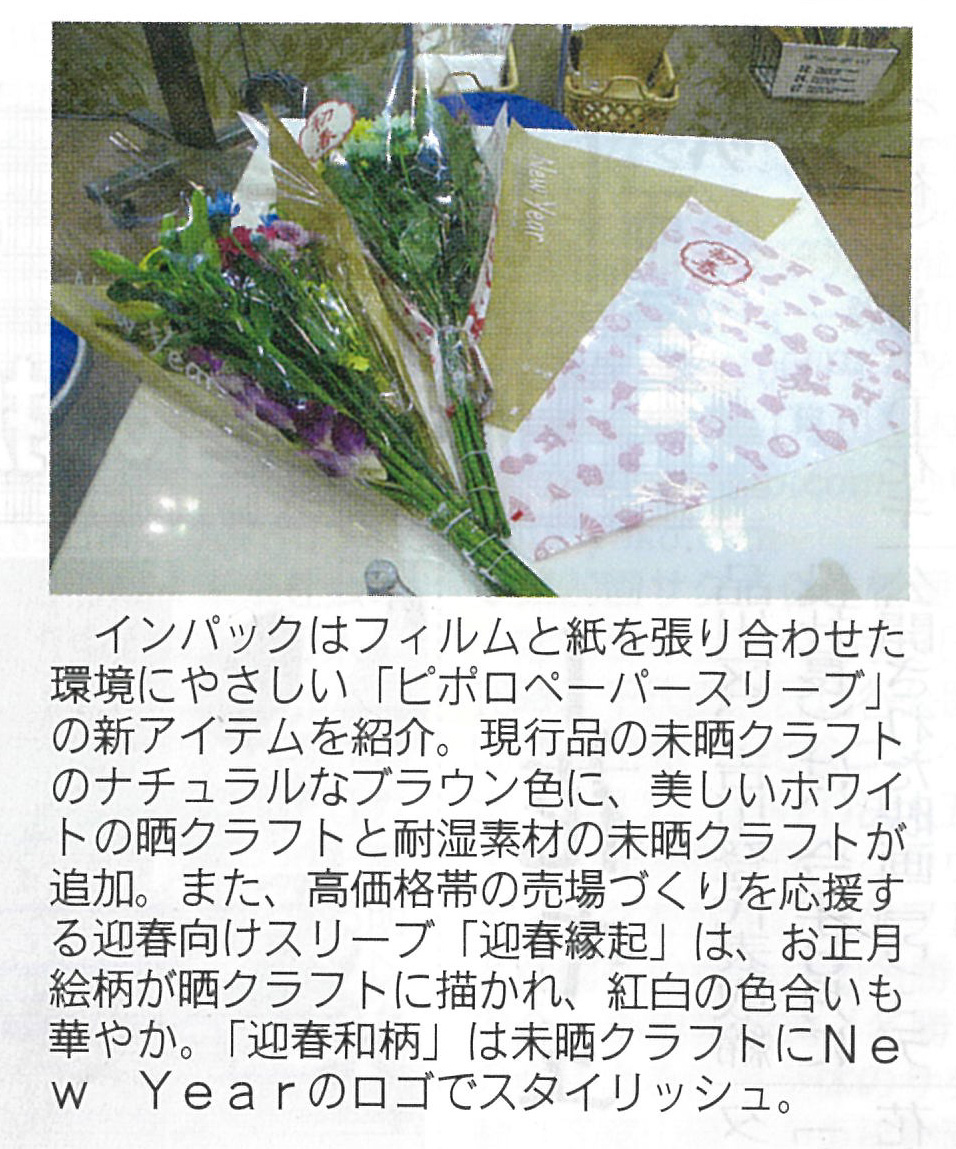 初春
New Year
初春
New Year
インパックはフィルムと紙を張り合わせた
環境にやさしい「ピポロペーパースリーブ」
の新アイテムを紹介。現行品の未晒クラフト
のナチュラルなブラウン色に、美しいホワイ
トの晒クラフトと耐湿素材の未晒クラフトが
追加。また、高価格帯の売場づくりを応援す
る迎春向けスリーブ「迎春縁起」は、お正月
絵柄が晒クラフトに描かれ、紅白の色合いも
華やか。「迎春和柄」は未晒クラフトにＮｅ
ｗ　Ｙｅａｒのロゴでスタイリッシュ。